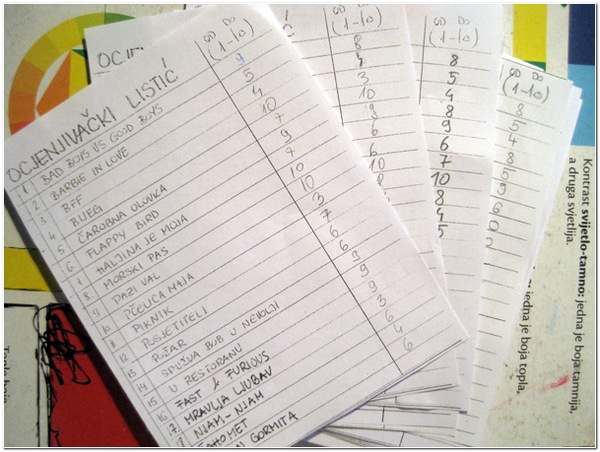 OCJENJIVAČKI LISTIĆ
OD DO
(1-10)
1 BAD BOYS VS GOOD BOYS 9
2 BARBIE IN LOVE 5
3 BFF 4
4 BIJEG 10
5 ČAROBNA OLOVKA 7
6 FLAPPY BIRD 9
7 HALJINA JE MOJA 7
8 MORSKI PAS 10
9 PAZI VAL 10
10 PČELICA MAJA 3
PIKNIK 7
12 POSJETITELJI 6
13 POŽAR 6
14 SPUŽVA BOB U NEVOLJI
15 U RESTORANU 9
16 FAST & FURIOUS 9
17 MRAVLJA LJUBAV 3
18 NJAM-NJAM 6
4
GORMITA 6
OCJEN
OD DO
(1-10)
8
3
10
9
6
6
OD DO
(1-10)
8
5
4
8
9
6
7
10
8
4
5
OD DO
(1-10)
8
5
4
8
5
9
6
0
2
Kontrast svijetlo-tamno: jedna je boja tamnija,
a druga svjetlija.
jedna je boja topla,